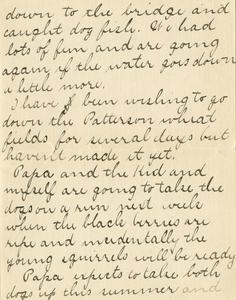 down to the bridge and
caught dog fish. We had
lots of fun and are going
again if the water goes down
a little more.
I have been wishing to go
down the Patterson wheat
fields for several days but
havent made it yet.
Papa and the Kid and
myself are going to take the
dogs on a run next week
when the black berries are
ripe and incidentally the
young squirrels will be ready
Papa expects to take both
dogs up this summer and